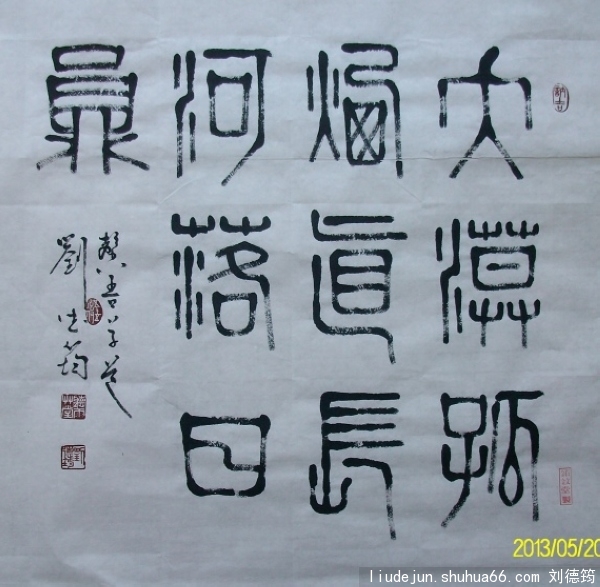 大漠孤
煙直長
河落日
員
劉德筠
2013/05/20
liudejun.shuhua66.com 刘德筠